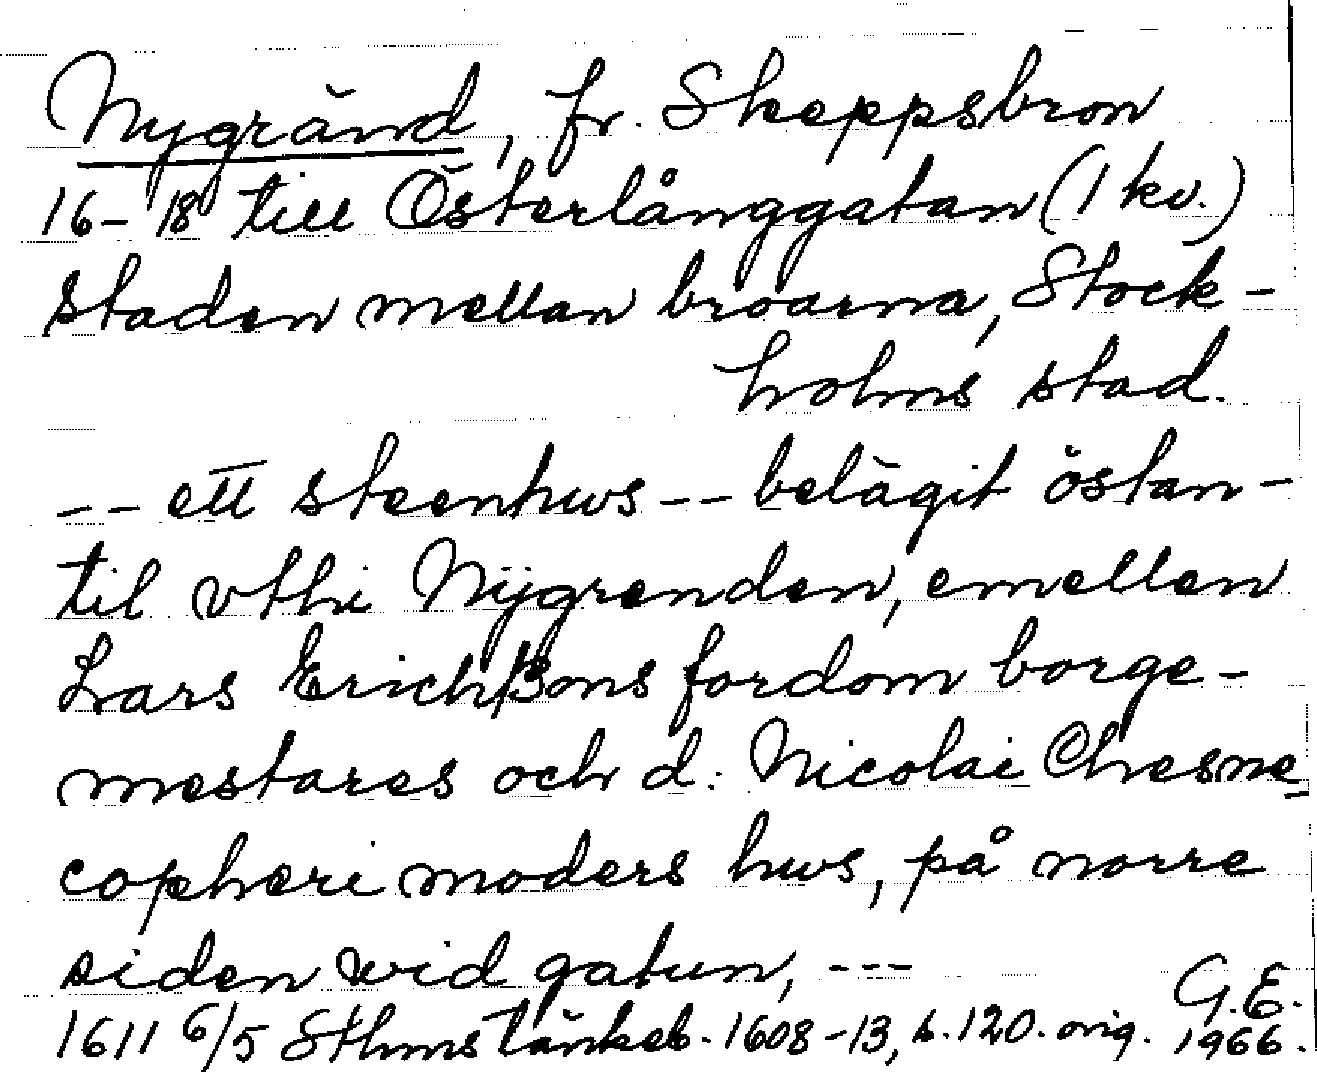 Nygränd, fr. Skeppsbron
16-18 till Österlånggatan (1 kv.)
staden mellan broarna, Stock-
holms stad.
-- ett steenhws -- belägit östan-
til vthi Nÿgrenden, emellen
Lars Erichßons fordom borge-
mestares och d: Nicolai Chesne-
copheri moders hws, på norre
siden wid gatun, ---
G.E.
1611 6/5 Sthms tänkeb. 1608-13, s. 120. orig. 1966.